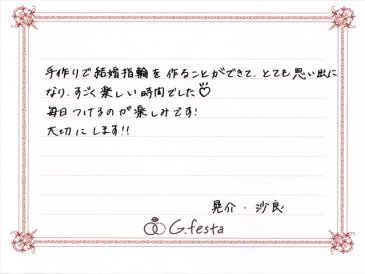 手作りで結婚指輪を作ることができて、とても思い出に
なり、すごく楽しい時間でした♡
毎日つけるのが楽しみです!
大切にします!!
晃介・沙良
G.festa